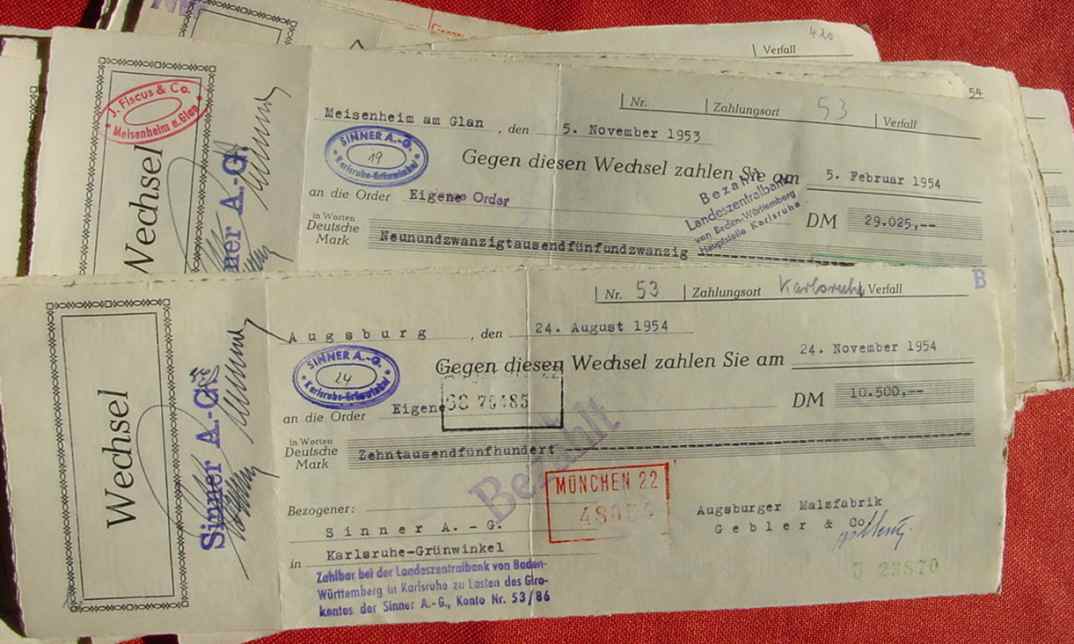 420
Verfall
54
J. Fiscus & Co.
Meisenheim a. Glan
Wechsel
Sinner A.-G.
Nr.
Zahlungsort
53
Verfall
Meisenheim am Glan , den 5. November 1953
SINNER A.-G.
19
Karlsruhe-Grünwinkel
Gegen diesen Wechsel zahlen Sie am 5. Februar 1954
an die Order Eigene Order
Bezahlt
Landeszentralbank
von Baden-Württemberg
Hauptstelle Karlsruhe
DM 29.025,--
in Worten
Deutsche
Mark
Neunundzwanzigtausendfünfundzwanzig
B
Nr. 53 Zahlungsort Karlsruhe Verfall
Wechsel
Sinner A.-G.
Augsburg , den 24. August 1954
SINNER A.-G.
24
Karlsruhe-Grünwinkel
Gegen diesen Wechsel zahlen Sie am 24. November 1954
an die Order Eigene
SC 76485
DM 10.500,--
in Worten
Deutsche
Mark
Zehntausendfünfhundert
Bezahlt
MÜNCHEN 22
Bezogener:
Sinner A.-G.
in Karlsruhe-Grünwinkel
Augsburger Malzfabrik
Gebler & Co
Zahlbar bei der Landeszentralbank von Baden-
Württemberg in Karlsruhe zu Lasten des Giro-
kontos der Sinner A.-G., Konto Nr. 53/86